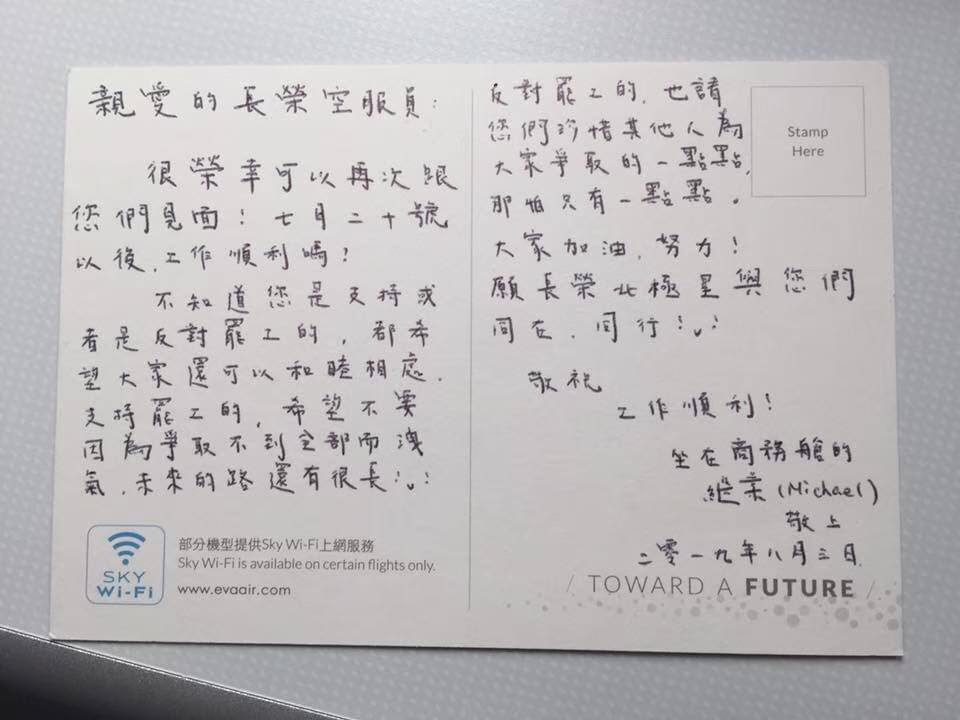 親愛的長榮空服員：
很榮幸可以再次跟
您們見面！七月二十號
以後，工作順利嗎？
不知道您是支持或
者是反對罷工的，都希
望大家還可以和睦相處。
支持罷工的，希望不要
因為爭取不到全部而洩
氣，未來的路還有很長：
部分機型提供Sky Wi-Fi上網服務
Sky Wi-Fi is available on certain flights only.
SKY
Wi-Fi
www.evaair.com
反對罷工的，也請
您們珍惜其他人為
大家爭取的一點點，
那怕只有一點點。
大家加油，努力！
願長榮北極星與您們
同在，同行！
敬祝
工作順利！
坐在商務艙的
繼業 (Michael)
敬上
二零一九年八月三日
Stamp
Here
/ TOWARD A FUTURE /